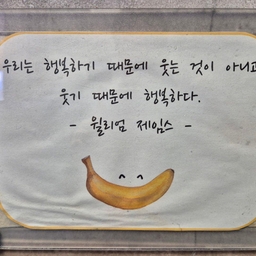 우리는 행복하기 때문에 웃는 것이 아니고
웃기 때문에 행복하다.
- 윌리엄 제임스 -